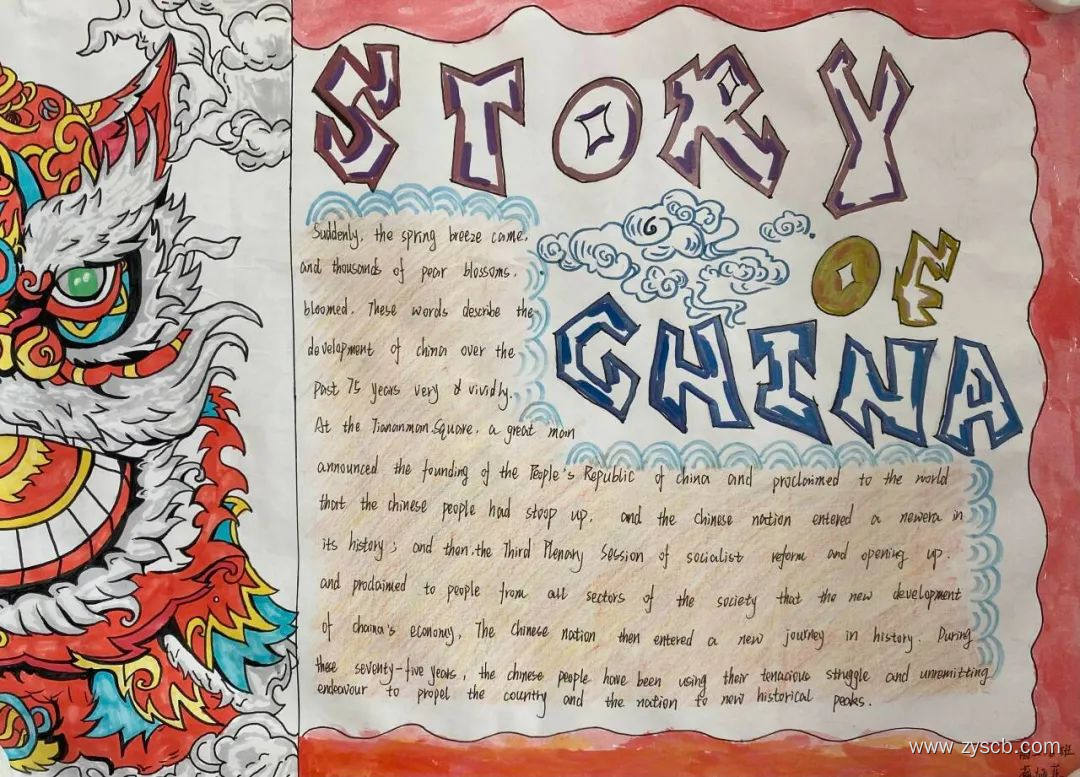 STORY
OF
CHINA
Suddenly, the spring breeze came,
and thousands of pear blossoms.
bloomed. These words describe the
development of china over the
past 75 years very & vividly.
At the Tiananman Square, a great man
announced the founding of the People's Republic of china and proclaimed to the world
that the chinese people had stoop up, and the Chinese nation entered a newera in
its history; and then, the Third Plenary Session of socialist reform and opening up.
and prodaimed to people from all sectors of the society that the new development
of chaina's economy, The Chinese nation then entered a new journey in history. During
these seventy-five years, the chinese people have been using their tenacious struggle and unremitting
endeavour to propel the country and the nation to new historical peaks.
www.zyscb.com
班